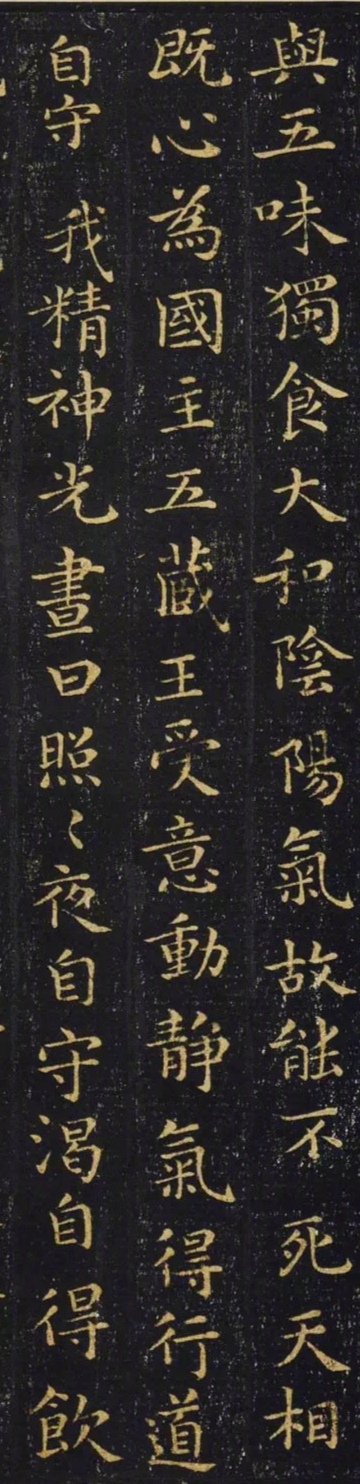 與五味獨食大和陰陽氣故能不死天相
既心為國主五藏王受意動靜氣得行道
自守我精神光晝日照〻夜自守渴自得飲